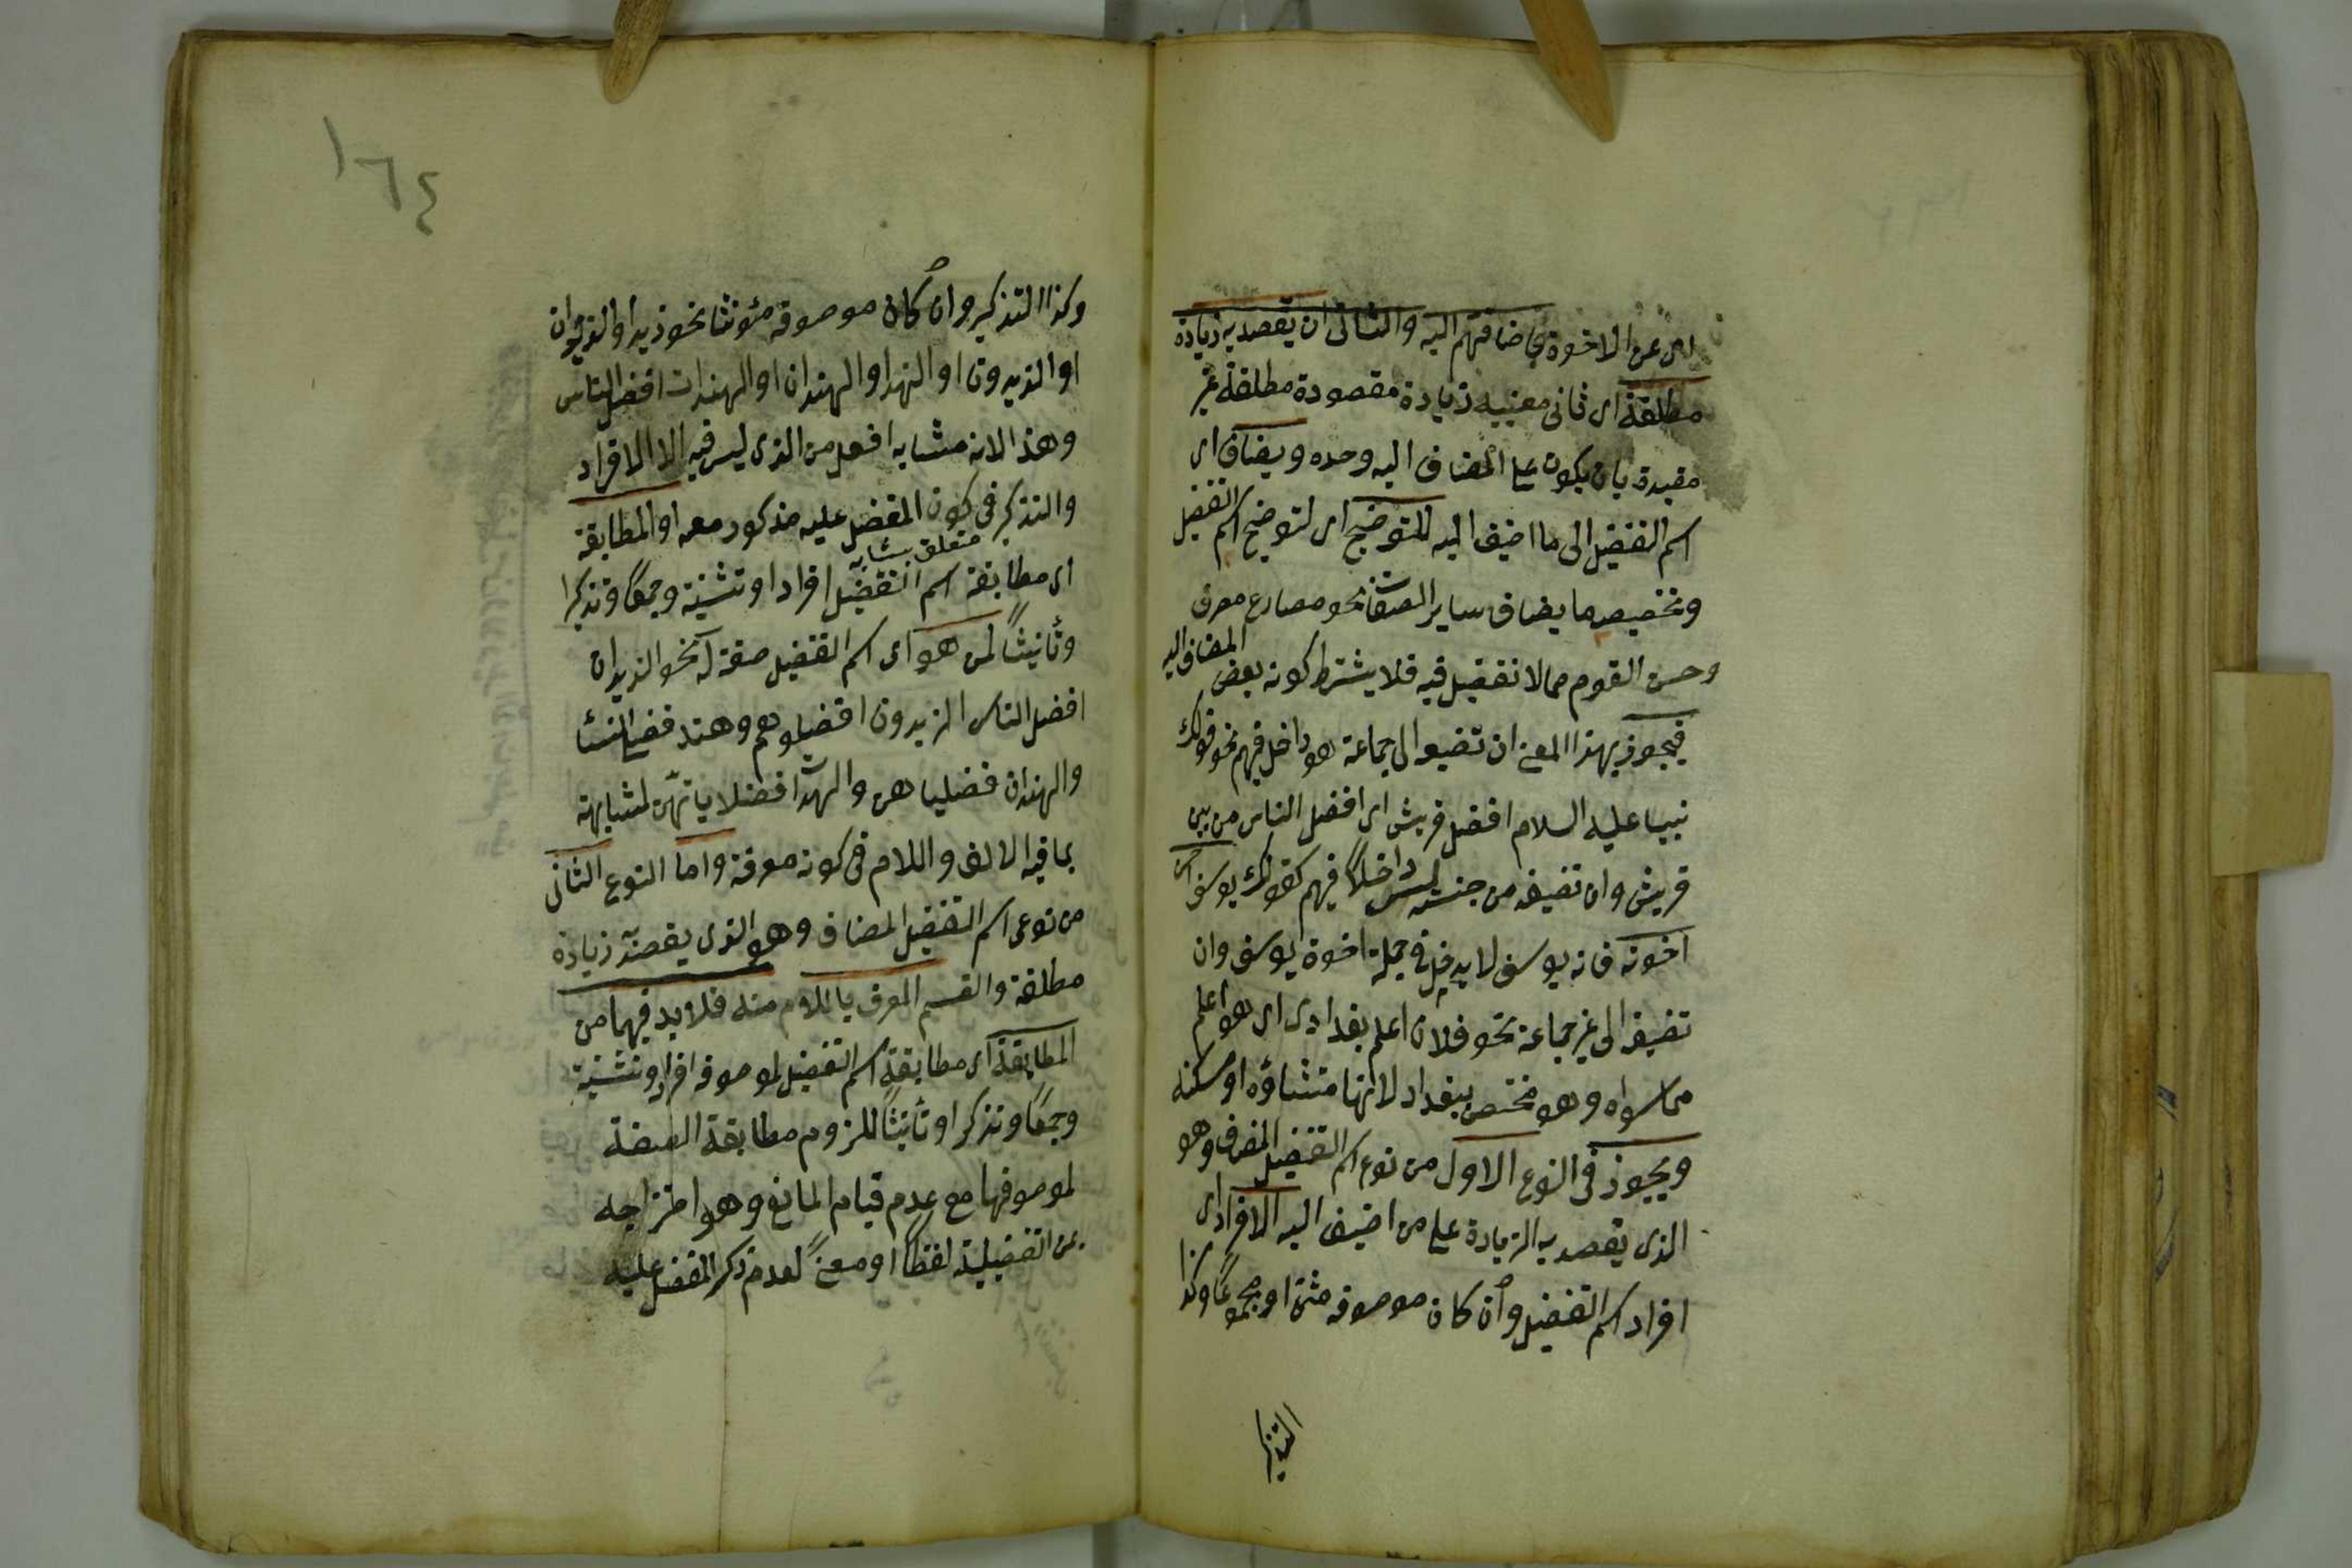 اى عن الاخوة باضافتهم اليه والثانى ان يقصد به زيادة
مطلقة اى ثانى معنييه زيادة مقصودة مطلقة غير
مقيدة بان يكون على المضاف اليه وحده ويضاف اى
اسم التفضيل الى ما اضيف اليه للتوضيح اى لتوضيح اسم التفضيل
وتخصيصه ما يضاف ساير الصفات نحو مصارع مصر
وحسن القوم مما لا تفضيل فيه فلا يشترط كونه بعض المضاف اليه
فيجوز بهذا المعنى ان تضيفه الى جماعة هو داخل فيهم نحو قولك
نبينا عليه السلام افضل قريش اى افضل الناس من بين
قريش وان تضيفه من جنسه ليس داخلا فيهم كقولك يوسف احسن
اخوته فانه يوسف لا يدخل فى جملة اخوة يوسف وان
تضيفه الى غير جماعة نحو فلان اعلم بغدادى اى هو اعلم
مما سواه وهو مختص ببغداد لانها منشاؤه او مسكنه
ويجوز فى النوع الاول من نوعى اسم التفضيل المضاف وهو
الذى يقصد به الزيادة على من اضيف اليه الافراد اى
افراد اسم التفضيل وان كان موصوفه مثنى او مجموعا وكذا
التذكير
١٦٤
وكذا التذكير وان كان موصوفه مؤنثا نحو زيد او الزيدان
او الزيدون او الهند او الهندان او الهندات افضل الناس
وهذا لانه مشابه افعل من الذى ليس فيه الا الافراد
والتذكير فى كون المفضل عليه مذكور معه او المطابقة
متعلق بمشابه
اى مطابقة اسم التفضيل افرادا وتثنية وجمعا وتذكيرا
وتأنيثا لمن هو اى اسم التفضيل صفة له نحو الزيدان
افضل الناس الزيدون افضلوهم وهند فضلى النساء
والهندان فضلياهن والهندات فضلياتهن لمشابهته
بما فيه الالف واللام فى كونه معرفة واما النوع الثانى
من نوعى اسم التفضيل المضاف وهو الذى يقصد به زيادة
مطلقة والقسم المعرف باللام منه فلا بد فيهما من
المطابقة اى مطابقة اسم التفضيل لموصوفه افرادا وتثنية
وجمعا وتذكيرا وتأنيثا للزوم مطابقة الصفة
لموصوفها مع عدم قيام المانع وهو امتزاجه
بمن التفضيلية لفظا او معنى لعدم ذكر المفضل عليه